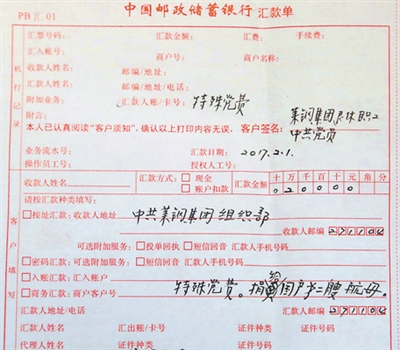 PB汇01 中国邮政储蓄银行 汇款单
汇票号码: 汇款金额: 汇费: 手续费:
汇入账号: 商户号: 商户名称:
收款人姓名: 邮编/地址:
汇款人姓名: 邮编/地址/电话:
附加业务: 汇款人账/卡号: 特殊党费
附言: 莱钢集团退休职工
本人已认真阅读“客户须知”,确认以上打印内容无误。 客户签名: 中共党员
业务流水号: 汇款日期: 2017.2.1.
操作员工号: 授权人工号:
机打记录
收款人姓名 汇款方式: 现金 账户扣款 汇款金额 十万千百十元角分
020000
请按汇款种类填写:
按址汇款: 收款人地址 中共莱钢集团组织部
收款人邮编 271104
可选附加服务: 投单回执 短信回音 汇款人手机号码
密码汇款: 可选附加服务: 短信回音 汇款人手机号码
入账汇款: 汇入账户
商务汇款: 商户客户号 特殊党费。捐给用户于二艘航母。
汇款人地址/电话 汇款人邮编 271104
汇款人姓名 汇出账/卡号 证件种类 证件号码
代理人姓名 证件种类 证件号码
客户填写